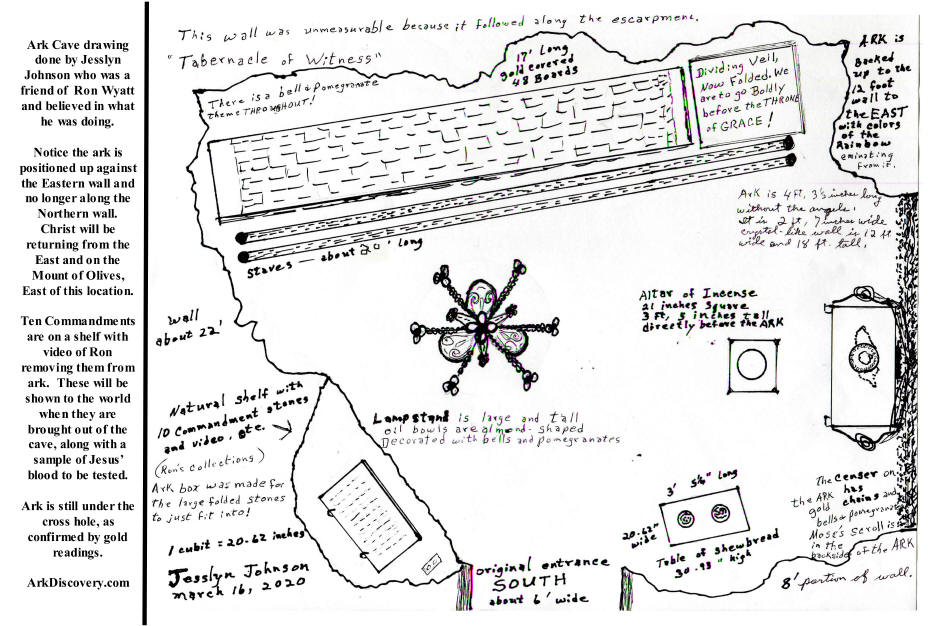 Ark Cave drawing
done by Jesslyn
Johnson who was a
friend of Ron Wyatt
and believed in what
he was doing.
Notice the ark is
positioned up against
the Eastern wall and
no longer along the
Northern wall.
Christ will be
returning from the
East and on the
Mount of Olives,
East of this location.
Ten Commandments
are on a shelf with
video of Ron
removing them from
ark. These will be
shown to the world
when they are
brought out of the
cave, along with a
sample of Jesus'
blood to be tested.
Ark is still under the
cross hole, as
confirmed by gold
readings.
ArkDiscovery.com
This wall was unmeasurable because it followed along the escarpment.
"Tabernacle of Witness"
There is a bell & pomegranate
theme THROUGHOUT!
17' Long
gold covered
48 Boards
Dividing Veil,
Now Folded. We
are to go Boldly
before the THRONE
of GRACE!
ARK is
Backed
up to the
12 foot
wall to
the EAST
with colors
of the
Rainbow
eminating
from it.
Ark is 4 ft, 3's inches long
without the angels.
It is 2 ft, 7 inches wide
crystal-like wall is 12 ft
wide and 18 ft. tall.
Staves — about 20' long
wall
about 22'
Altar of Incense
21 inches square
3 ft, 5 inches tall
directly before the ARK
Natural shelf with
10 Commandment stones
and video, etc.
(Ron's collections)
Ark box was made for
the large folded stones
to just fit into!
1 cubit = 20.62 inches
Jesslyn Johnson
march 16, 2020
Lampstand is large and tall
oil bowls are almond-shaped
Decorated with bells and pomegranates
3' 5¼" Long
20.62"
wide
Table of shewbread
30.93" high
The censer on
the ARK has
gold chains and
bells & pomegranates
Mose's scroll is
in the
backside of the ARK
original entrance
SOUTH
about 6' wide
8' portion of wall.